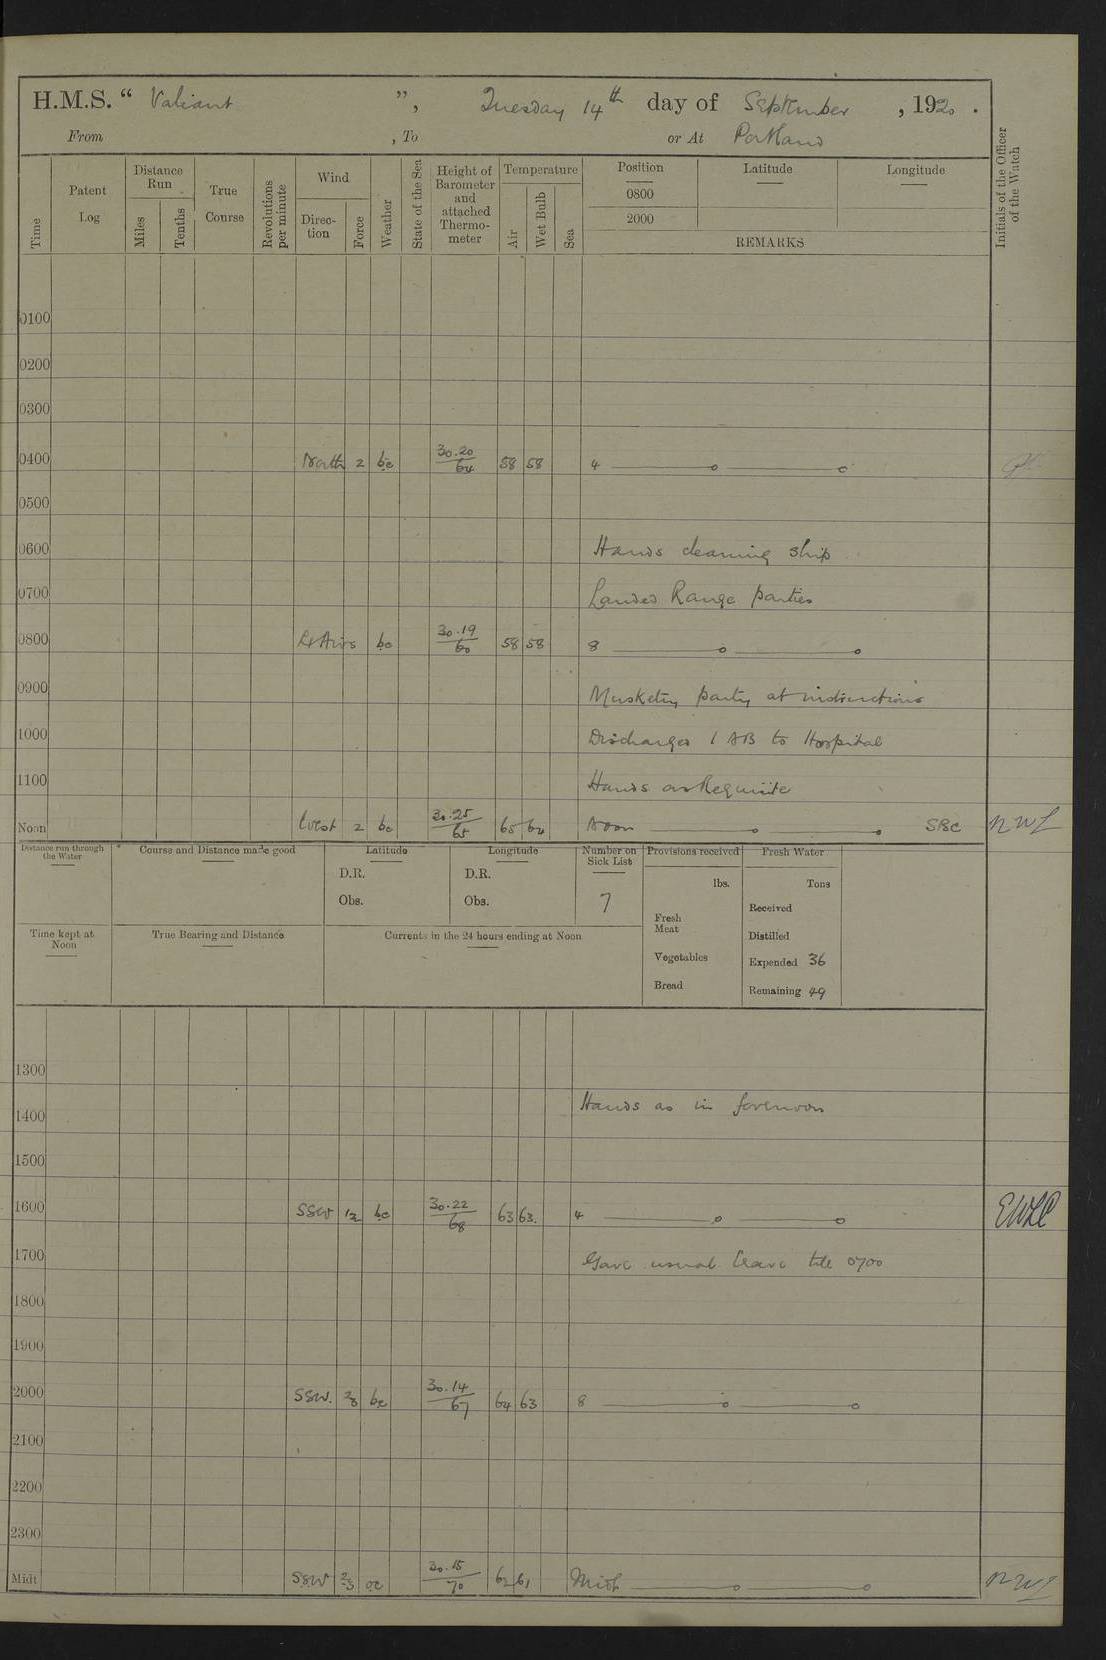 H.M.S. “ Valiant ”, Tuesday 14th day of September , 1920 .
From , To or At Portland
Time
Patent Log
Distance Run
Miles
Tenths
True Course
Revolutions per minute
Wind
Direc-tion
Force
Weather
State of the Sea
Height of Barometer and attached Thermo-meter
Temperature
Air
Wet Bulb
Sea
Position
0800
2000
Latitude
Longitude
REMARKS
Initials of the Officer of the Watch
0100
0200
0300
0400 North 2 bc 30.20/64 58 58 4
0500
0600 Hands cleaning ship
0700 Landed Range parties
0800 Lt Airs bc 30.19/60 58 58 8
0900 Musketry party at instructions
1000 Discharged 1 AB to Hospital
1100 Hands as Requisite
Noon West 2 bc 30.25/65 65 64 Noon SBC NWL
Distance run through the Water
Course and Distance made good
Latitude
D.R.
Obs.
Longitude
D.R.
Obs.
Number on Sick List
7
Provisions received
lbs.
Fresh Meat
Vegetables
Bread
Fresh Water
Tons
Received
Distilled
Expended 36
Remaining 49
Time kept at Noon
True Bearing and Distance
Currents in the 24 hours ending at Noon
1300
1400 Hands as in forenoon
1500
1600 SSW 1/2 bc 30.22/68 63 63. 4 EWLC
1700 Gave usual leave till 0700
1800
1900
2000 SSW. bc 30.14/67 64 63 8
2100
2200
2300
Midt SSW 2/3 oc 30.15/70 62 61 Midt NWL